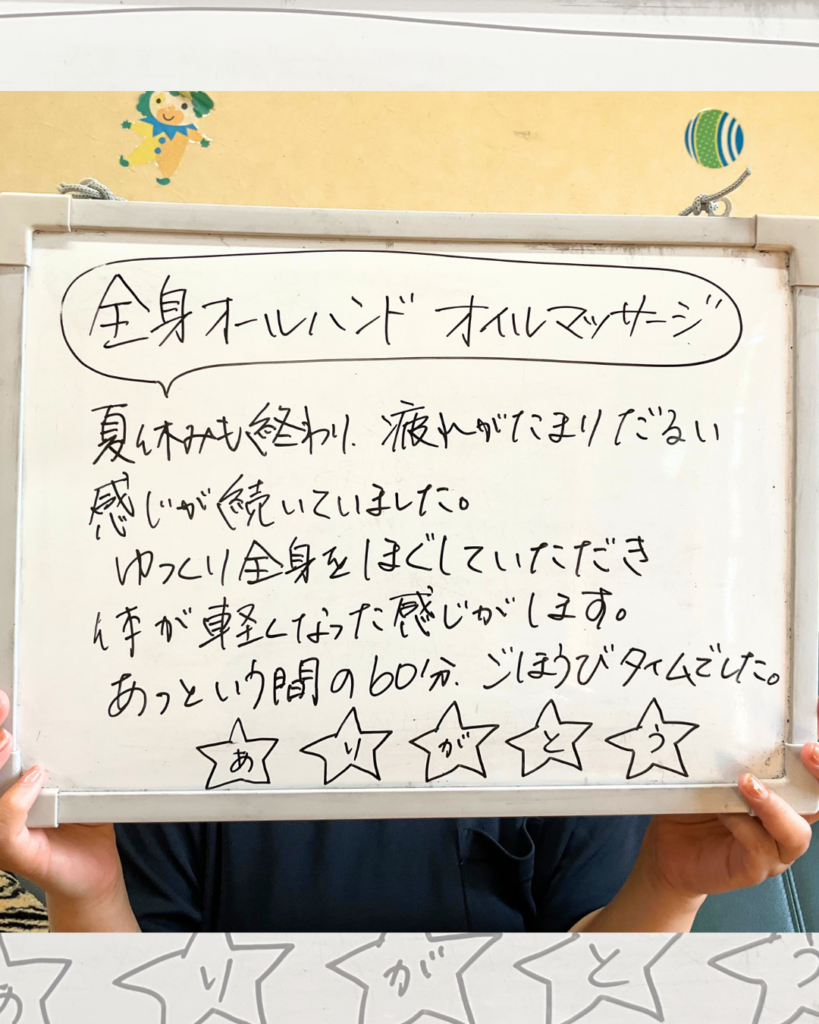 全身オールハンド オイルマッサージ
夏休みも終わり、疲れがたまりだるい
感じが続いていました。
ゆっくり全身をほぐしていただき
体が軽くなった感じがします。
あっという間の60分、ごほうびタイムでした。
ありがとう
ありがとう